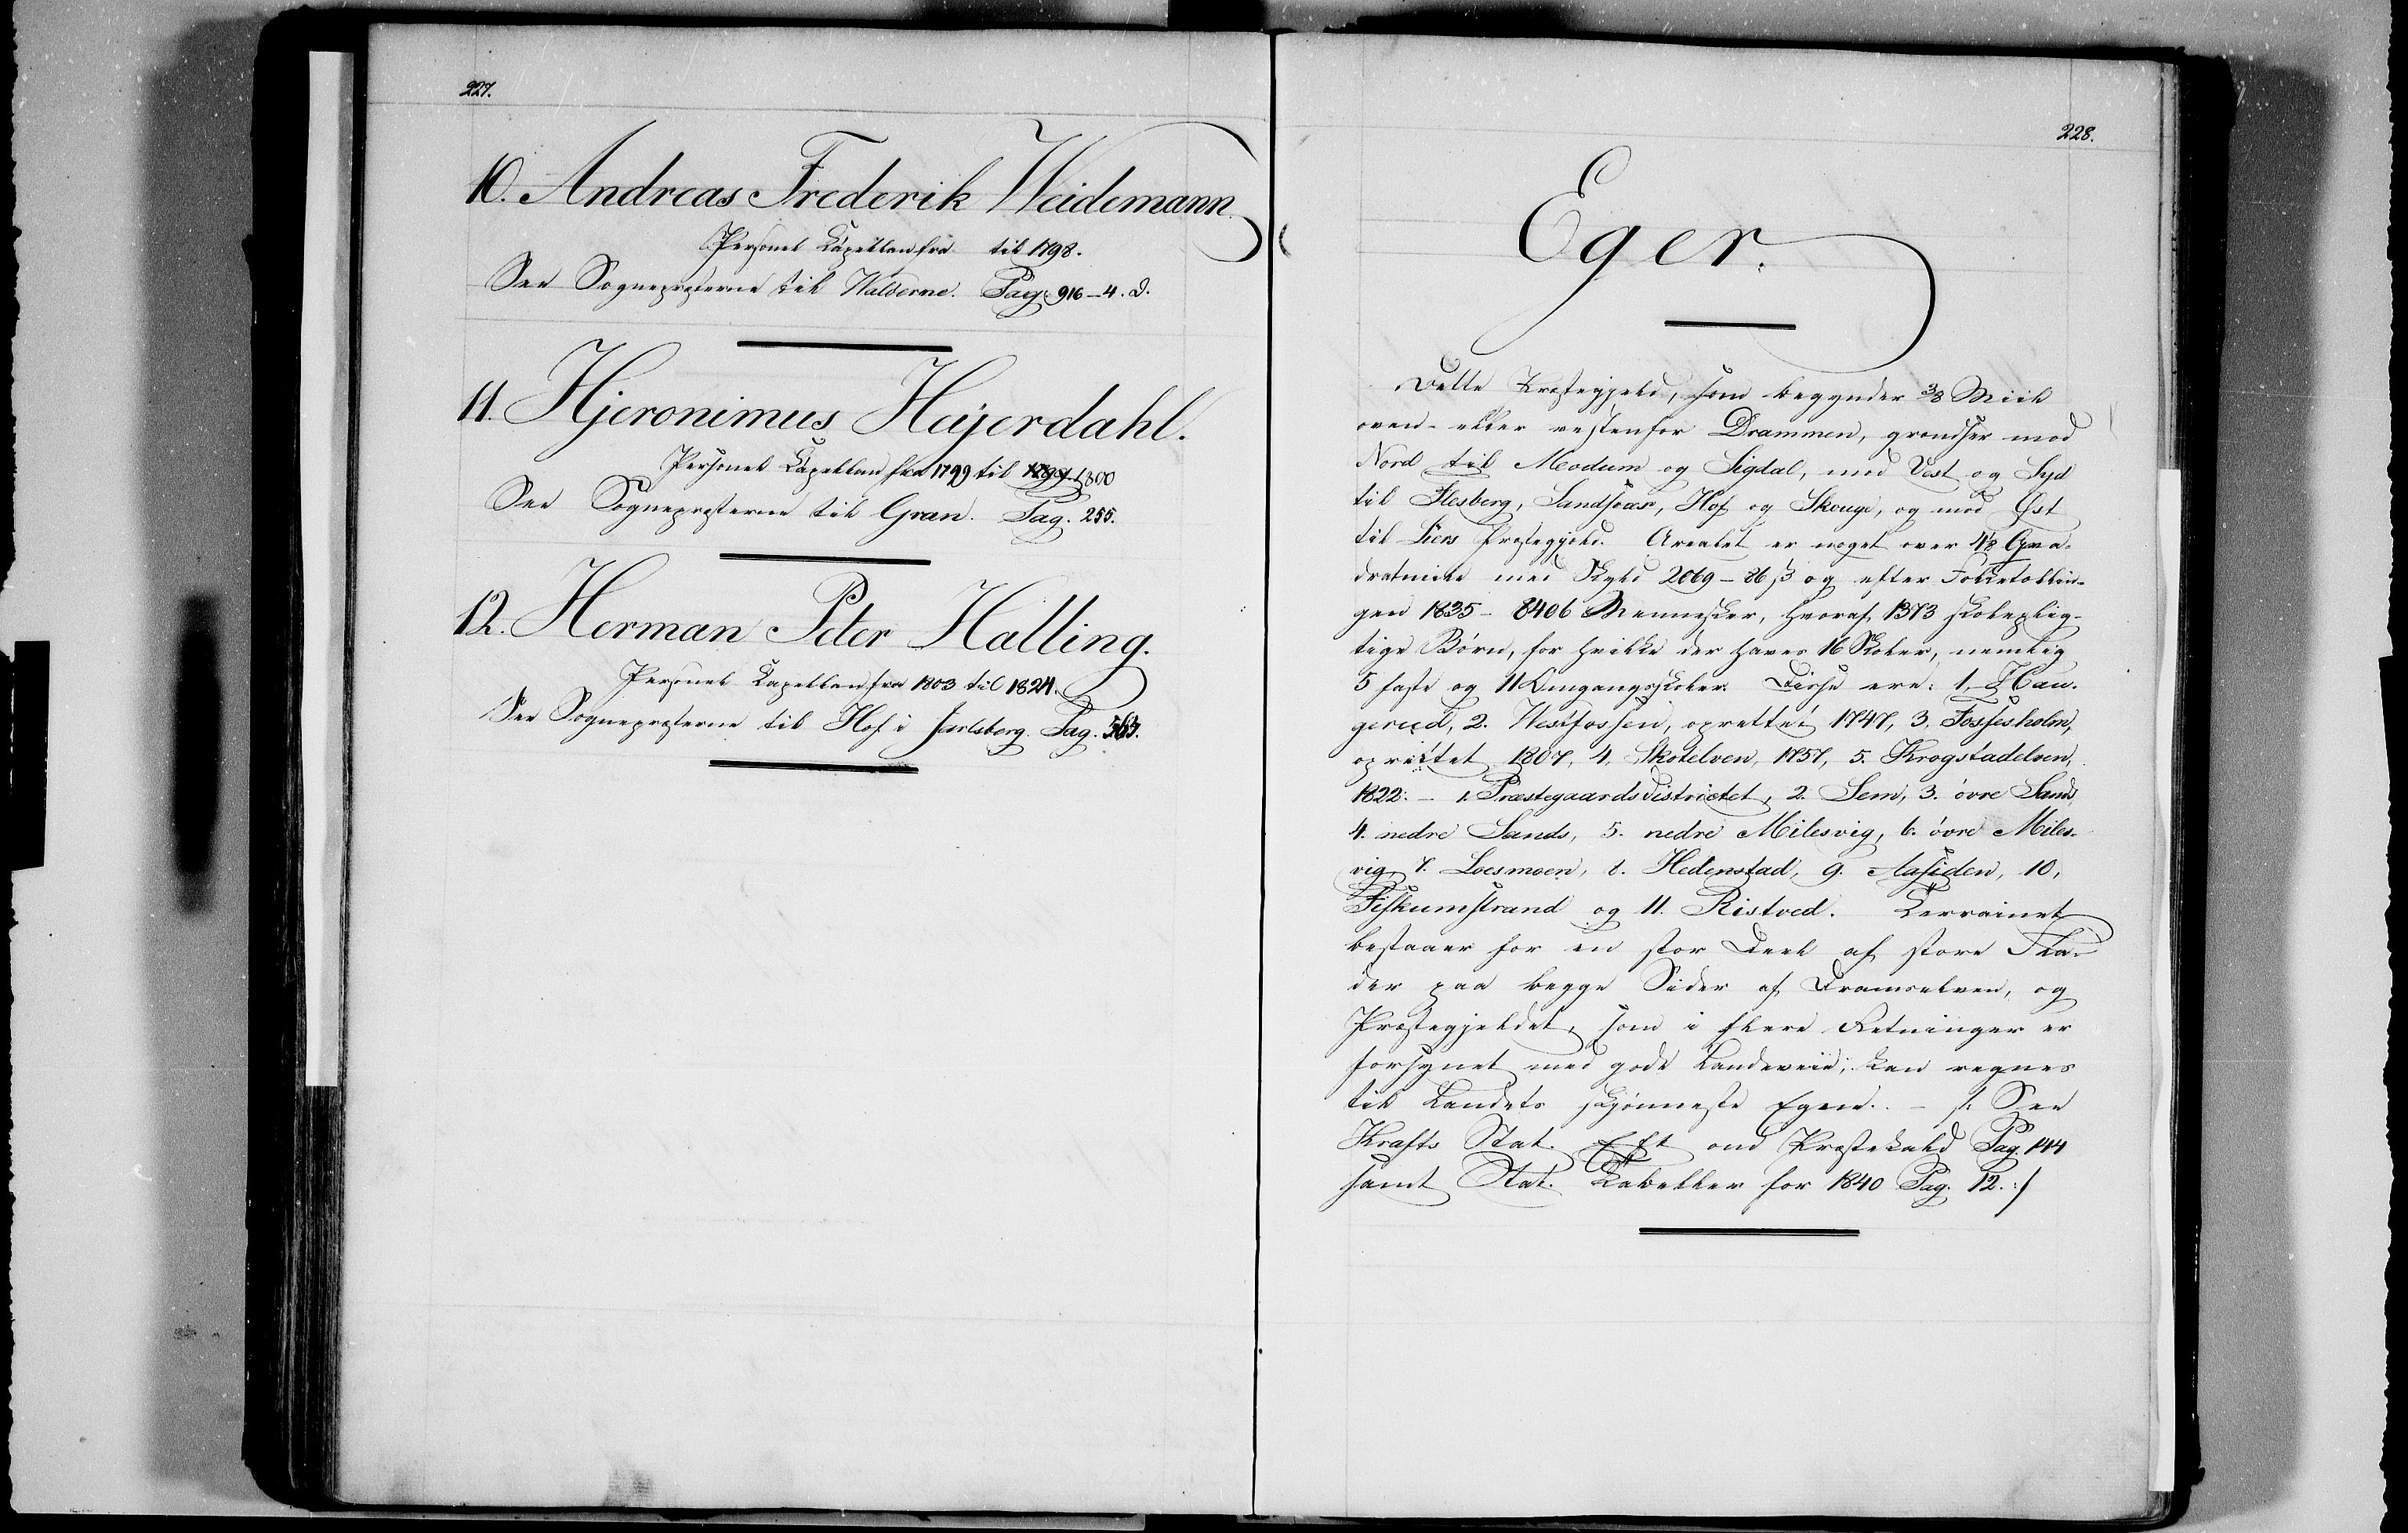 227.
10. Andreas Frederik Weidemann.
Personel Capellan fra til 1798.
See Sognepræsterne til Walderne. Pag. 916-4. d.
11. Hjeronimus Heÿerdahl.
Personel Capellan fra 1799 til 1800
See Sognepræsterne til Gran. Pag. 255.
12. Herman Peter Halling.
Personel Capellan fra 1803 til 1824.
See Sognepræsterne til Hof i Jarlsberg. Pag. 363.
228.
Eger.
Dette Præstegjeld, som begynder 3/8 Miil
oven- eller vestenfor Drammen, grændser mod
Nord til Modum og Sigdal, mod Vest og Syd
til Flesberg, Sandsvær, Hof og Skouge, og mod Øst
til Liers Præstegjeld. Arealet er noget over Qva-
dratmiil med Skyld 2069 - 86 ß og efter Folketællin-
gen 1835 - 8406 Mennesker, hvoraf 1373 skolepligt-
tige Børn, for hvilke der haves 16 Skoler, nemlig
5 faste og 11 Omgangsskoler. Disse ere: 1. Hau-
gerud, 2. Westfossen, oprettet 1747, 3. Fossesholm,
oprettet 1807, 4. Skotelven, 1757, 5. Krogstadelven,
1822: - 1. Præstegaardsdistrictet, 2. Sem, 3. øvre Sands,
4. nedre Sands, 5. nedre Milesvig, 6. øvre Miles-
vig, 7. Loesmoen, 8. Hedenstad, 9. Aasiden, 10,
Fiskumstrand og 11. Ristved. Terrainet
bestaaer for en stor Deel af store Fla-
der paa begge Sider af Dramselven, og
Præstegjeldet, som i flere Retninger er
forsynet med gode Landeveie, kan regnes
til Landets skjønneste Egne. - /: See
Krafts Stat. Eft om Præstekald Pag. 144
samt Stat. Tabeller for 1840 Pag. 12. :/